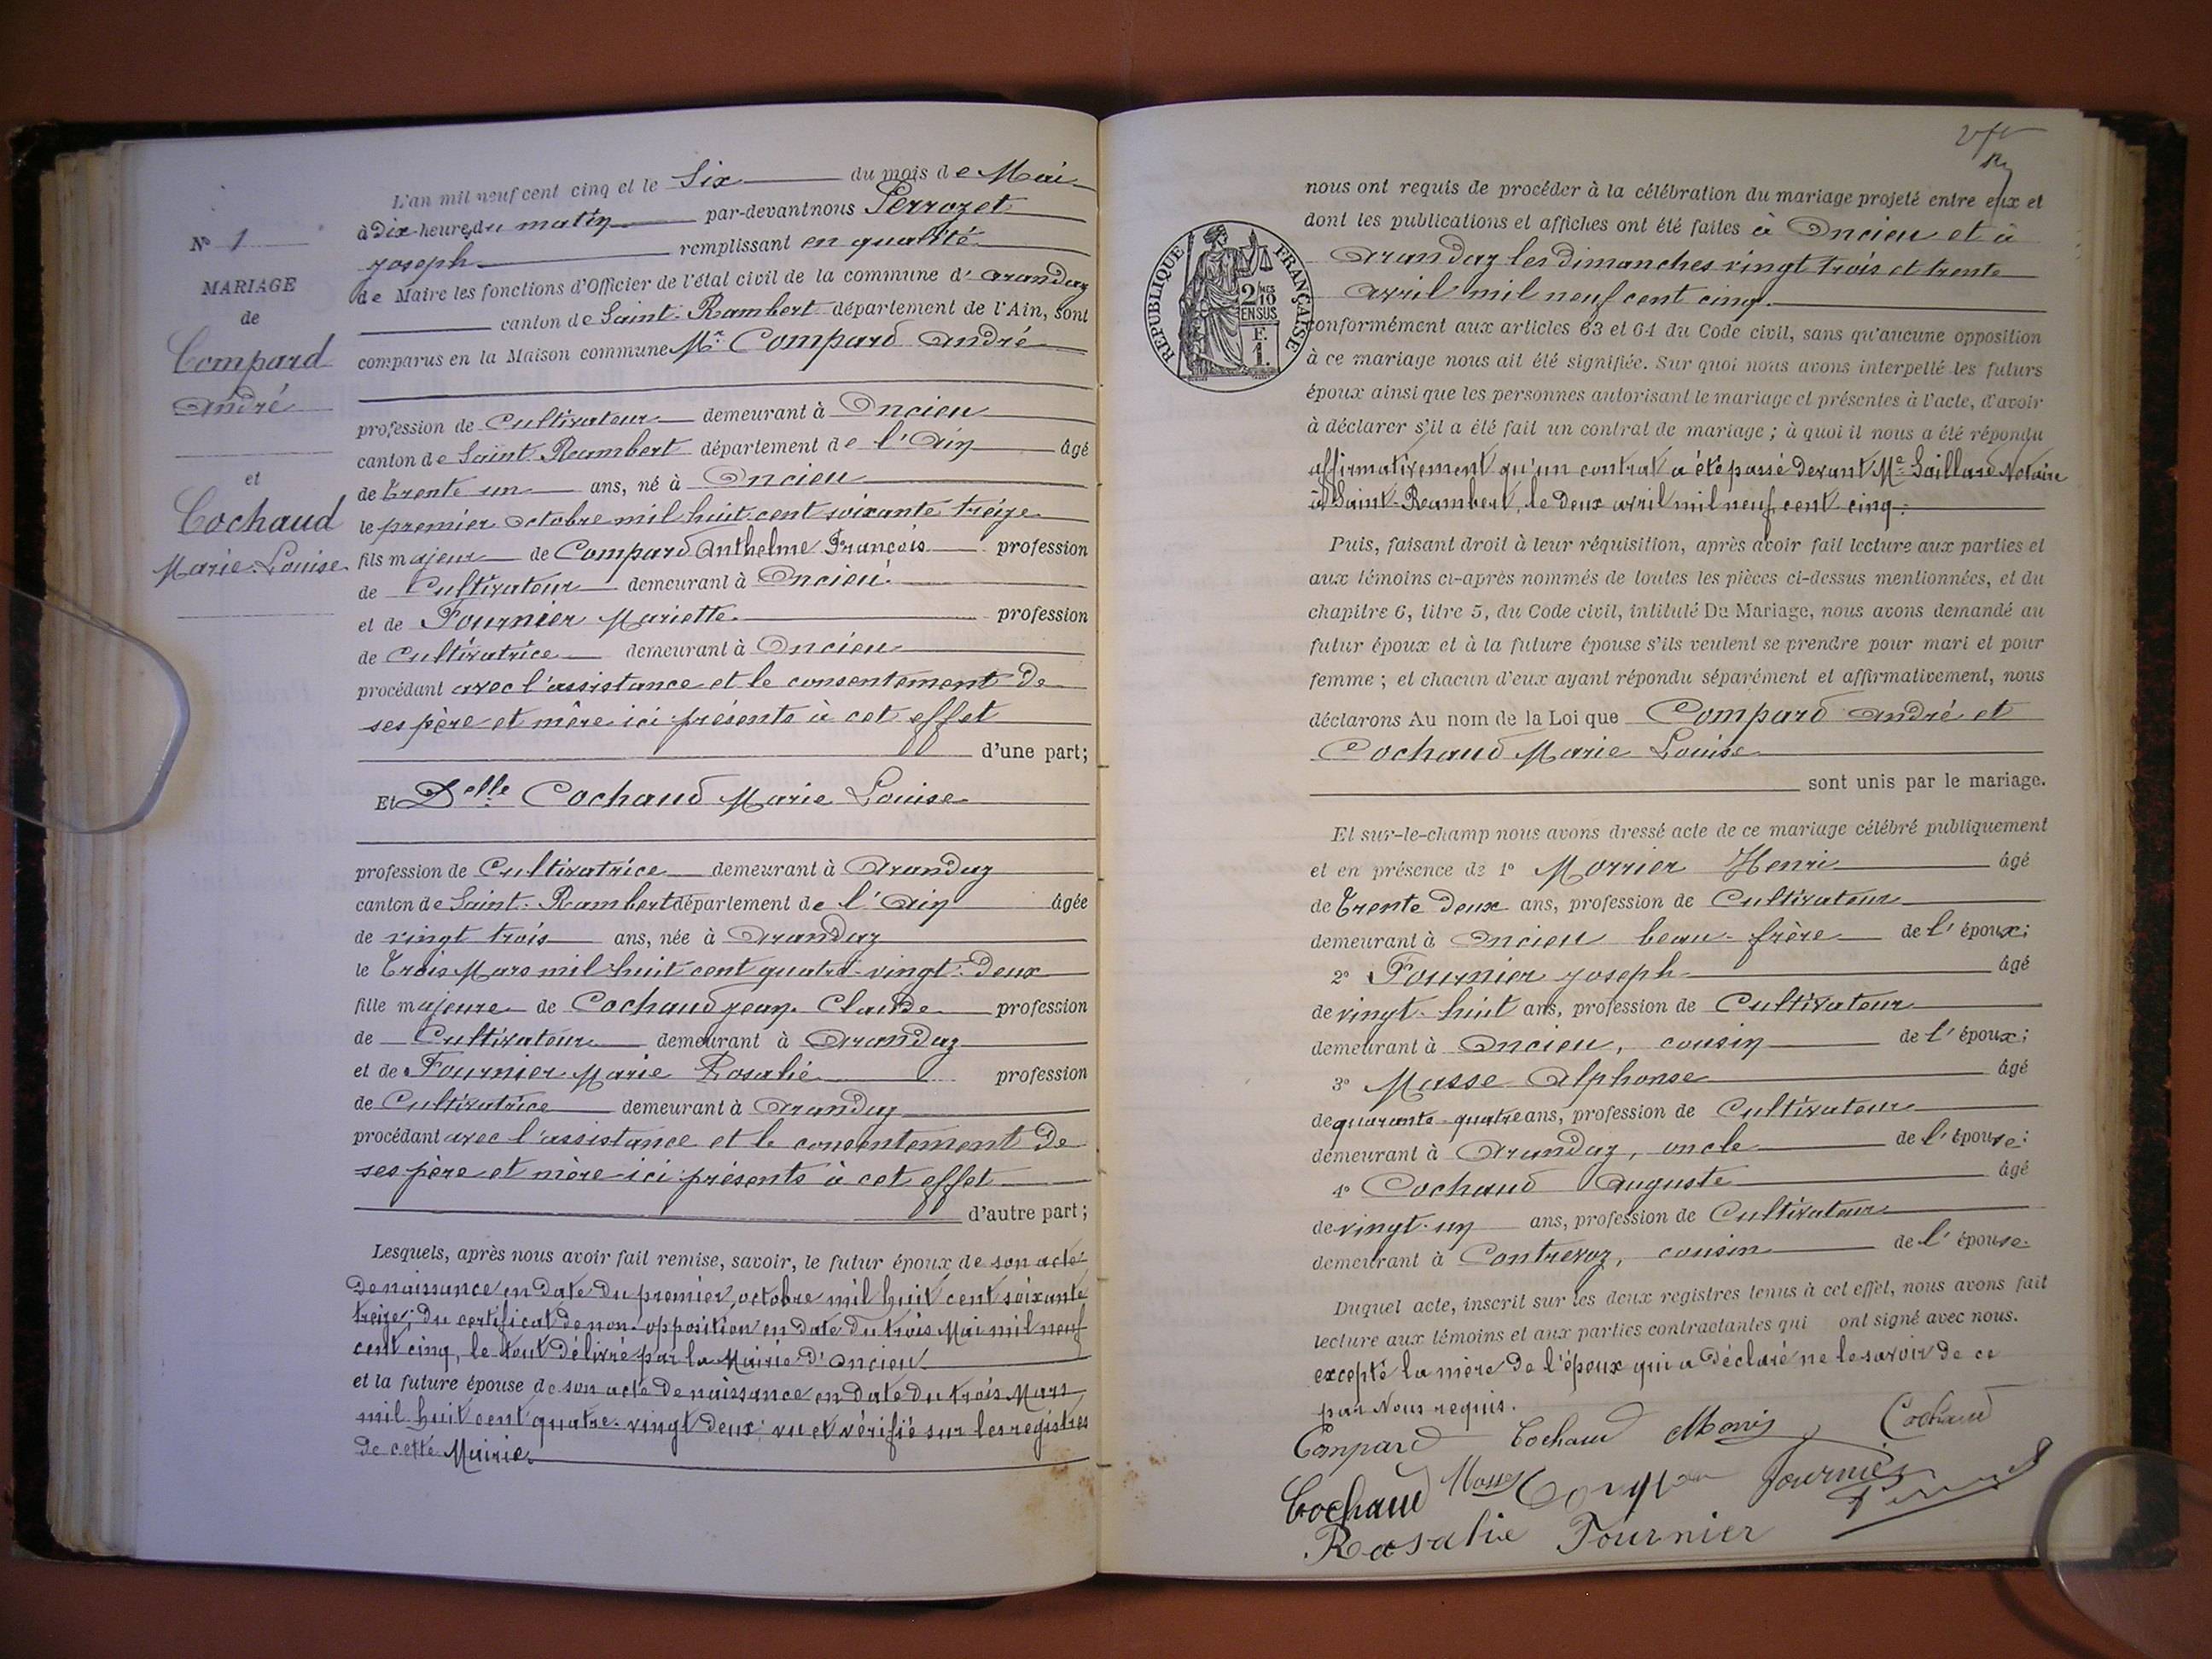 N° 1
MARIAGE
de
Compard
André
et
Cochaud
Marie Louise
L'an mil neuf cent cinq et le Six du mois de Mai
à Dix heures du matin par-devant nous Perrozet
Joseph remplissant en qualité
de Maire les fonctions d'Officier de l'état civil de la commune d'Arandaz
canton de Saint-Rambert département de l'Ain, sont
comparus en la Maison commune Mr Compard André
profession de Cultivateur demeurant à Oncieu
canton de Saint Rambert département de l'Ain âgé
de trente un ans, né à Oncieu
le premier Octobre mil huit cent soixante treize
fils majeur de Compard Anthelme François profession
de Cultivateur demeurant à Oncieu
et de Fournier Mariette profession
de Cultivatrice demeurant à Oncieu
procédant avec l'assistance et le consentement de
ses père et mère ici présents à cet effet
d'une part;
Et Delle Cochaud Marie Louise
profession de Cultivatrice demeurant à Arandaz
canton de Saint-Rambert département de l'Ain âgée
de vingt trois ans, née à Arandaz
le Trois Mars mil huit cent quatre-vingt-deux
fille majeure de Cochaud Jean Claude profession
de Cultivateur demeurant à Arandaz
et de Fournier Marie Rosalie profession
de Cultivatrice demeurant à Arandaz
procédant avec l'assistance et le consentement de
ses père et mère ici présents à cet effet
d'autre part;
Lesquels, après nous avoir fait remise, savoir, le futur époux de son acte
de naissance en date du premier octobre mil huit cent soixante
treize; du certificat de non-opposition en date du trois Mai mil neuf
cent cinq, le tout délivré par la Mairie d'Oncieu.
et la future épouse de son acte de naissance en date du trois Mars
mil huit cent quatre-vingt deux vu et vérifié sur les registres
de cette Mairie.
RÉPUBLIQUE FRANÇAISE
2/10
EN SUS
F.
1.
nous ont requis de procéder à la célébration du mariage projeté entre eux et
dont les publications et affiches ont été faites à Oncieu et à
Arandaz les dimanches vingt trois et trente
Avril mil neuf cent cinq.
conformément aux articles 63 et 64 du Code civil, sans qu'aucune opposition
à ce mariage nous ait été signifiée. Sur quoi nous avons interpellé les futurs
époux ainsi que les personnes autorisant le mariage et présentes à l'acte, d'avoir
à déclarer s'il a été fait un contrat de mariage; à quoi il nous a été répondu
affirmativement qu'un contrat a été passé devant Me Saillard Notaire
à Saint-Rambert, le deux avril mil neuf cent cinq.
Puis, faisant droit à leur réquisition, après avoir fait lecture aux parties et
aux témoins ci-après nommés de toutes les pièces ci-dessus mentionnées, et du
chapitre 6, titre 5, du Code civil, intitulé Du Mariage, nous avons demandé au
futur époux et à la future épouse s'ils veulent se prendre pour mari et pour
femme; et chacun d'eux ayant répondu séparément et affirmativement, nous
déclarons Au nom de la Loi que Compard André et
Cochaud Marie Louise
sont unis par le mariage.
Et sur-le-champ nous avons dressé acte de ce mariage célébré publiquement
et en présence de 1° Morrier Henri âgé
de Trente deux ans, profession de Cultivateur
demeurant à Oncieu beau-frère de l'époux;
2° Fournier Joseph âgé
de vingt-huit ans, profession de Cultivateur
demeurant à Oncieu, cousin de l'époux;
3° Masse Alphonse âgé
de quarante-quatre ans, profession de Cultivateur
demeurant à Arandaz, oncle de l'épouse;
4° Cochaud Auguste âgé
de vingt-un ans, profession de Cultivateur
demeurant à Contrevoz, cousin de l'épouse.
Duquel acte, inscrit sur les deux registres tenus à cet effet, nous avons fait
lecture aux témoins et aux parties contractantes qui ont signé avec nous.
excepté la mère de l'époux qui a déclaré ne le savoir de ce
par Nous requis.
Compard Cochaud Cochaud
Cochaud Masse Fournier
Rosalie Fournier